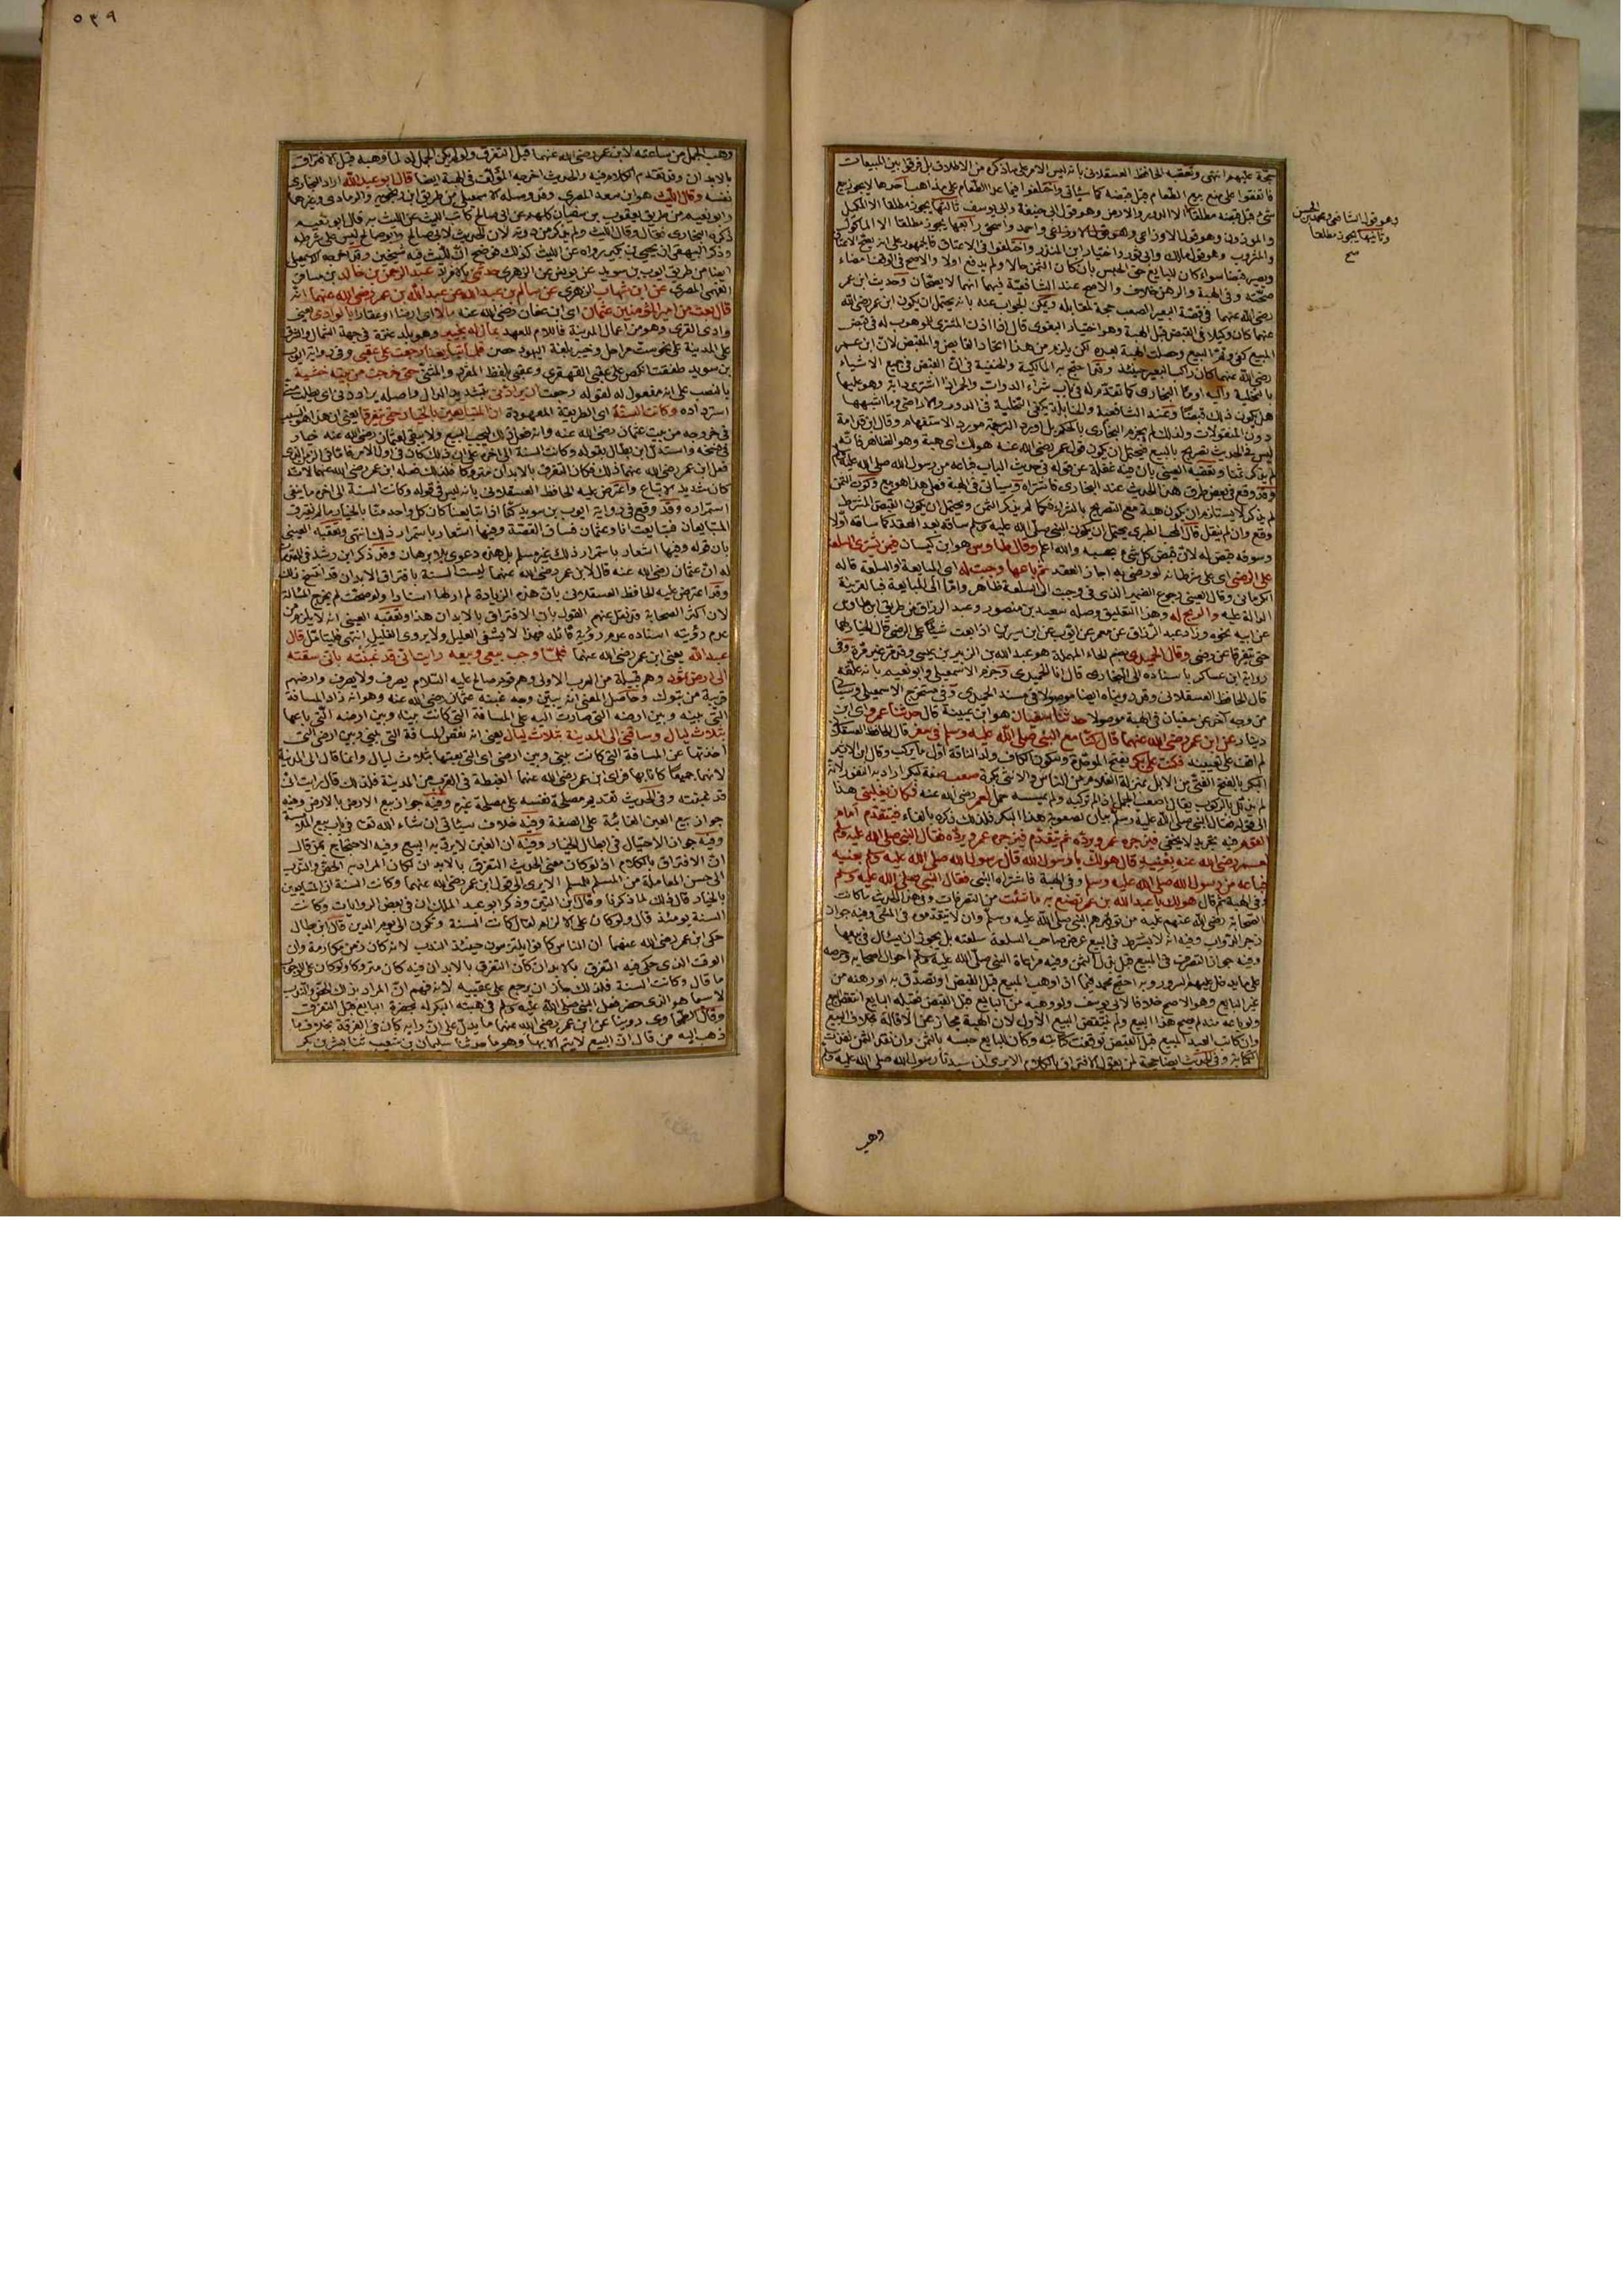 حجة عليهم انتهى وتعقبه الحافظ العسقلاني بانه ليس الامر على ما ذكره من الاطلاق بل فرقوا بين المبيعات
فاتفقوا على منع بيع الطعام قبل قبضه كما سيأتي واختلفوا فيما عدا الطعام على مذاهب احدها لا يجوز بيع
شيء قبل قبضه مطلقا الا الدور والارض وهو قول ابي حنيفة وابي يوسف ثالثها يجوز مطلقا الا المكيل
والموزون وهو قول الاوزاعي واحمد واسحق رابعها يجوز مطلقا الا المأكول
والمشروب وهو قول مالك وابي ثور واختيار ابن المنذر واختلفوا في الاعتاق فالجمهور على انه يصح الاعتاق
ويصير قبضا سواء كان للبايع حق الحبس بان كان الثمن حالا ولم يدفع اولا والاصح في الوقف ايضا
صحته وفي الهبة والرهن خلاف والاصح عند الشافعية فيهما انهما لا يصحان وحديث ابن عمر
رضى الله عنهما في قصة البعير الصعب حجة لمقابله ويمكن الجواب عنه بانه يحتمل ان يكون ابن عمر رضى الله
عنهما كان وكيلا في القبض قبل الهبة وهو اختيار البغوى قال اذا اذن المشترى للموهوب له في قبض
المبيع كفى وتم البيع وحصلت الهبة بعده لكن يلزم من هذا اتحاد القابض والمقبض لان ابن عمر
رضى الله عنهما كان راكب البعير حينئذ وقد احتج به المالكية والحنفية في ان القبض في جميع الاشياء
بالتخلية واليه اومأ البخارى كما تقدم له في باب شراء الدواب والحمر اذا اشترى دابة وهو عليها
هل يكون ذلك قبضا وعند الشافعية والحنابلة يكفى التخلية في الدور والاراضى وما اشبهها
دون المنقولات ولذلك لم يجزم البخارى بالحكم بل اورد الترجمة مورد الاستفهام وقال ابن قدامة
ليس في الحديث تصريح بالبيع فيحتمل ان يكون قول عمر رضى الله عنه هو لك اى هبة وهو الظاهر فانه
لم يذكر ثمنا وتعقبه العينى بان فيه غفلة عن قوله في حديث الباب فباعه من رسول الله صلى الله عليه وسلم
وقد وقع في بعض طرق هذا الحديث عند البخارى فاشتراه وسيأتى في الهبة فعلى هذا هو بيع وكون الثمن
لم يذكر لا يستلزم ان يكون هبة مع التصريح بالشراء فكما لم يذكر الثمن يحتمل ان يكون القبض المشترط
وقع وان لم ينقل قال المحب الطبرى يحتمل ان يكون النبى صلى الله عليه وسلم ساقه بعد العقد كما ساقه اولا
وسوقه قبض له لان قبض كل شيء بحسبه والله اعلم وقال طاوس هو ابن كيسان فيمن يشترى السلعة
على الرضى اى على شرط انه لو رضى به اجاز العقد ثم باعها وجبت له اى المبايعة او السلعة قاله
الكرمانى وقال العينى رجوع الضمير الذى في وجبت الى السلعة ظاهر واما الى المبايعة فبالقرينة
الدالة عليه والربح له وهذا التعليق وصله سعيد بن منصور وعبد الرزاق من طريق ابن طاوس
عن ابيه نحوه وزاد عبد الرزاق عن معمر عن ايوب عن ابن سيرين اذا بعت شيئا على الرضى قال الخيار لهما
حتى يتفرقا عن رضى وقال الحميدى بضم الحاء المهملة هو عبد الله بن الزبير بن عيسى وقد مر غير مرة وفي
رواية ابن عساكر باسناده الى البخارى قال لنا الحميدى وجزم الاسمعيلى وابو نعيم بانه علقه
قال الحافظ العسقلانى وقد رويناه ايضا موصولا في مسند الحميدى وفي مستخرج الاسمعيلى وسيأتى
من وجه آخر عن سفيان في الهبة موصولا حدثنا سفيان هو ابن عيينة قال حدثنا عمرو اى ابن
دينار عن ابن عمر رضى الله عنهما قال كنا مع النبى صلى الله عليه وسلم في سفر قال الحافظ العسقلانى
لم اقف على تعيينه فكنت على بكر بفتح الموحدة وسكون الكاف ولد الناقة اول ما يركب وقال ابن الاثير
البكر بالفتح الفتى من الابل بمنزلة الغلام من الناس والانثى بكرة صعب صفة لبكر اراد به النفور لانه
لم يذلل بالركوب يقال اصعب الجمل اذا لم تركبه ولم يمسسه حبل لعمر رضى الله عنه فكان يغلبنى هذا
الى قوله فقال النبى صلى الله عليه وسلم بيان لصعوبة هذا البكر فلذلك ذكره بالفاء فيتقدم امام
القوم فيزجره عمر ويرده ثم يتقدم فيزجره عمر ويرده فقال النبى صلى الله عليه وسلم
لعمر رضى الله عنه بعنيه قال هو لك يا رسول الله قال رسول الله صلى الله عليه وسلم بعنيه
فباعه من رسول الله صلى الله عليه وسلم وفي الهبة فاشتراه النبى فقال النبى صلى الله عليه وسلم
هو لك يا عبد الله بن عمر تصنع به ما شئت من التصرفات وفي هذا الحديث ما كانت
الصحابة رضى الله عنهم عليه من توقيرهم النبى صلى الله عليه وسلم وان لا يتقدموه في المشى وفيه جواز
زجر الدواب وفيه انه لا يشترط في البيع عرض صاحب السلعة سلعته بل يجوز ان يسأل في بيعها
وفيه جواز التصرف في المبيع قبل بذل الثمن وفيه مراعاة النبى صلى الله عليه وسلم احوال اصحابه وحرصه
على ما يدخل عليهم السرور وبه احتج محمد فيما اذا وهب المبيع قبل القبض او تصدق به او رهنه من
غير البايع وهو الاصح خلافا لابى يوسف ولو وهبه من البايع قبل القبض فقبله البايع انتقض البيع
ولو باعه منه لم يصح هذا البيع ولم ينتقض البيع الاول لان الهبة مجاز عن الاقالة بخلاف البيع
وان كاتب العبد المبيع قبل القبض توقفت كتابته وكان للبايع حبسه بالثمن وان نقد الثمن نفذت
الكتابة وفي الحديث ايضا حجة لمن يقول الافتراق بالكلام الا يرى ان سيدنا رسول الله صلى الله عليه وسلم
وهو قول الشافعى ومحمد بن الحسن
وثانيها يجوز مطلقا
صح
وهب
٥٣٩
وهب الجمل من ساعته لابن عمر رضى الله عنهما قبل التفرق ولو لم يكن الجمل له لما وهبه قبل الافتراق
بالابدان وقد تقدم الكلام فيه والحديث اخرجه المؤلف في الهبة ايضا قال ابو عبد الله اراد البخارى
نفسه وقال الليث هو ابن سعد المصرى وقد وصله الاسمعيلى من طريق ابن زنجويه والرمادى وغيرهما
وابو نعيم من طريق يعقوب بن سفيان كلهم عن ابى صالح كاتب الليث عن الليث به قال ابو نعيم
ذكره البخارى فقال وقال الليث ولم يذكر من دونه لان الحديث لابى صالح وابو صالح ليس على شرطه
وذكر البيهقى ان يحيى بن بكير رواه عن الليث كذلك فوضح ان لليث فيه شيخين وقد اخرجه الاسمعيلى
ايضا من طريق ايوب بن سويد عن يونس عن الزهرى حدثنى بالافراد عبد الرحمن بن خالد بن مسافر
الفهمى المصرى عن ابن شهاب الزهرى عن سالم بن عبد الله عن عبد الله بن عمر رضى الله عنهما انه
قال بعت من امير المؤمنين عثمان اى ابن عفان رضى الله عنه مالا اى ارضا او عقارا بالوادى يعنى
وادى القرى وهو من اعمال المدينة فاللام للعهد بمال له بخيبر وهو بلد عنزة في جهة الشمال والشرق
على المدينة على نحو ست مراحل وخيبر بلغة اليهود حصن فلما تبايعنا رجعت على عقبى وفي رواية ايوب
بن سويد طفقت انكص على عقبى القهقرى وعقبى بلفظ المفرد والمثنى حتى خرجت من بيته خشية
بالنصب على انه مفعول له لقوله رجعت ان يرادنى بتشديد الدال واصله يراددنى اى يطلب منى
استرداده وكانت السنة اى الطريقة المعهودة ان المتبايعين بالخيار حتى يتفرقا يعنى ان هذا هو السبب
في خروجه من بيت عثمان رضى الله عنه وانه فعل ذلك ليجب البيع ولا يبقى لعثمان رضى الله عنه خيار
في فسخه واستدل ابن بطال بقوله وكانت السنة الى اخره على ان ذلك كان في اول الامر فاما في الزمن الذى
فعل ابن عمر رضى الله عنهما ذلك فكان التفرق بالابدان متروكا فلذلك فعله ابن عمر رضى الله عنهما لانه
كان شديد الاتباع واعترض عليه الحافظ العسقلانى بانه ليس في قوله وكانت السنة الى اخره ما ينفى
استمراره وقد وقع في رواية ايوب بن سويد كنا اذا تبايعنا كان كل واحد منا بالخيار ما لم يتفرق
المتبايعان فتبايعت انا وعثمان فساق القصة وفيها اشعار باستمرار ذلك انتهى وتعقبه العينى
بان قوله وفيها اشعار باستمرار ذلك غير مسلم بل هذه دعوى بلا برهان وقد ذكر ابن رشد في المقدمات
له ان عثمان رضى الله عنه قال لابن عمر رضى الله عنهما ليست السنة بافتراق الابدان قد انتسخ ذلك
وقد اعترض عليه الحافظ العسقلانى بان هذه الزيادة لم ار لها اسنادا ولو صحت لم يخرج المسألة
لان اكثر الصحابة قد نقل عنهم القول بان الافتراق بالابدان هذا وتعقبه العينى انه لا يلزم من
عدم رؤيته اسناده عدم رؤية قائله فهذا لا يشفى العليل ولا يروى الغليل انتهى فليتأمل قال
عبد الله يعنى ابن عمر رضى الله عنهما فلما وجب بيعى وبيعه رايت انى قد غبنته بانى سقته
الى ارض ثمود وهم قبيلة من العرب الاولى وهم قوم صالح عليه السلام يصرف ولا يصرف وارضهم
قريبة من تبوك وحاصل المعنى انه يبين وجه غبنه عثمان رضى الله عنه وهو انه زاد المسافة
التى بينه وبين ارضه التى صارت اليه على المسافة التى كانت بينه وبين ارضه التى باعها
بثلاث ليال وساقنى الى المدينة بثلاث ليال يعنى انه نقص المسافة التى بينى وبين ارضى التى
اخذتها عن المسافة التى كانت بينى وبين ارضى اى التى بعتها بثلاث ليال وانما قال الى المدينة
لانهما جميعا كانا بها فراى ابن عمر رضى الله عنهما الغبطة في القرب من المدينة فلذلك قال رايت انى
قد غبنته وفي الحديث تقديم مصلحة نفسه على مصلحة غيره وفيه جواز بيع الارض بالارض وفيه
جواز بيع العين الغائبة على الصفة وفيه خلاف سيأتى ان شاء الله تعا في باب بيع الملامسة
وفيه جواز الاحتيال في ابطال الخيار وفيه ان الغبن لا يرد به البيع وفيه الاحتجاج لمن قال
ان الافتراق بالكلام اذ لو كان معنى الحديث التفرق بالابدان لكان المراد به الحض والندب
الى حسن المعاملة من المسلم للمسلم الا يرى الى قول ابن عمر رضى الله عنهما وكانت السنة ان المتبايعين
بالخيار قال ذلك لما ذكرنا وقال ابن التين وذكر ابو عبد الملك ان في بعض الروايات وكانت
السنة يومئذ قال ولو كان على الالزام لقال كانت السنة وتكون الى يوم الدين قال ابن بطال
حكى ابن عمر رضى الله عنهما ان الناس كانوا يلتزمون حينئذ الندب لانه كان زمن مكارمة وان
الوقت الذى حكى فيه التفرق بالابدان كان التفرق بالابدان فيه كان متروكا ولو كان على الوجوب
ما قال وكانت السنة فلذلك جاز ان يرجع على عقبيه لانه فهم ان المراد بذلك الحض والندب
لا سيما هو الذى حضر فعل النبى صلى الله عليه وسلم في هبته البكر له بحضرة البايع قبل التفرق
وقال الطحاوى روينا عن ابن عمر رضى الله عنهما ما يدل على ان رايه كان في الفرقة بخلاف ما
ذهب اليه من قال ان البيع لا يتم الا بها وهو ما حدثنا سليمان بن شعيب ثنا بشر بن بكر